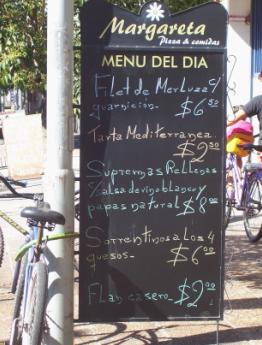 Margareta
Pizza & comidas
MENU DEL DIA
Filet de Merluza c/
guarnicion. $6.50
Tarta Mediterranea.
$2.50
Supremas Rellenas
c/salsa de vino blanco y
papas natural $8.00
Sorrentinos a los 4
quesos. $6.00
Flan casero. $2.00